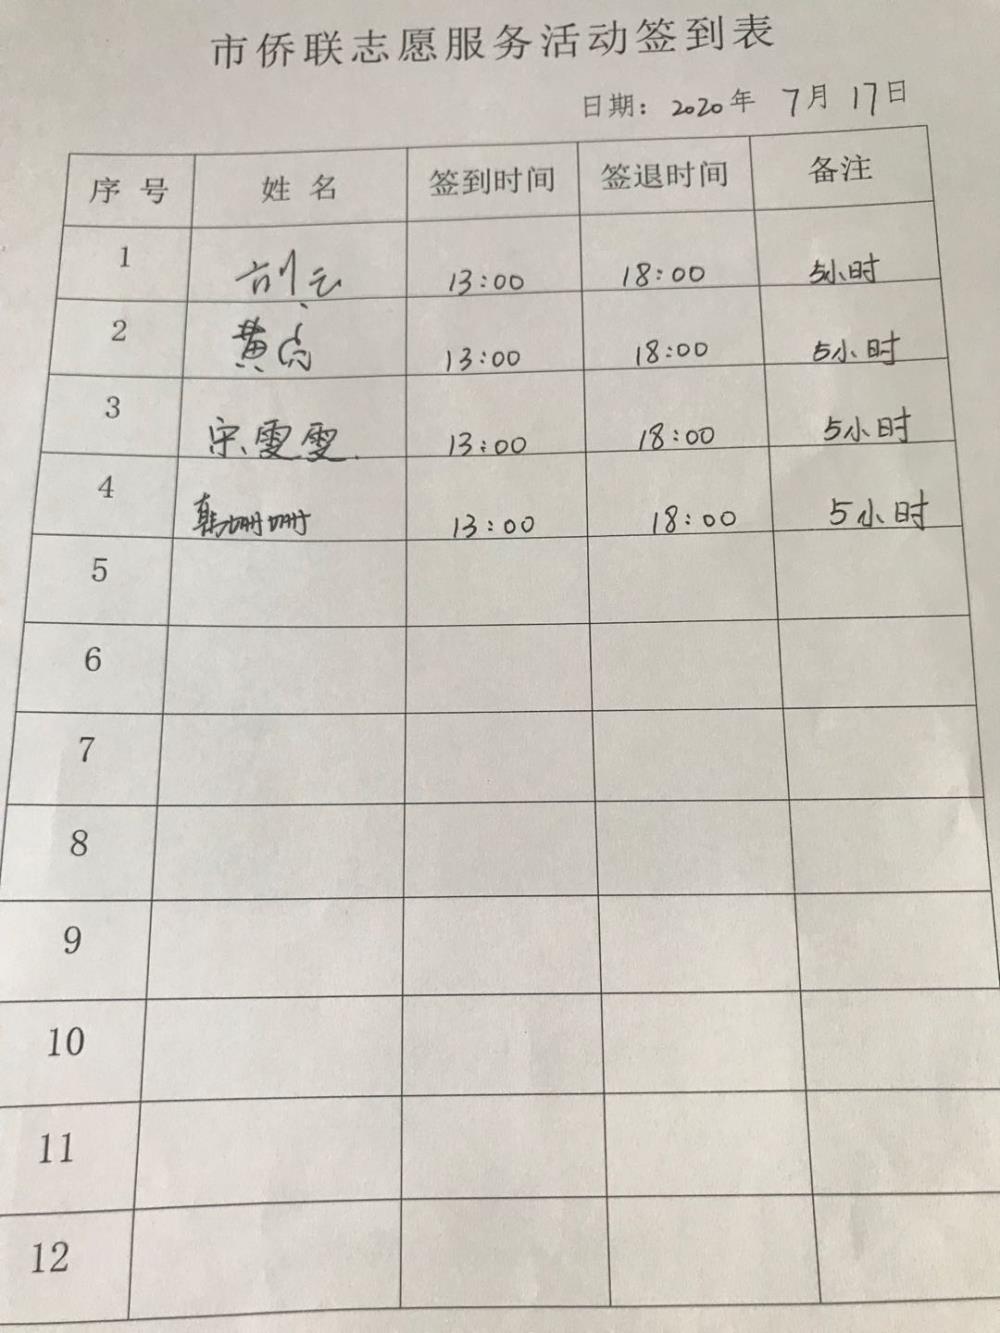 市侨联志愿服务活动签到表
日期: 2020年 7月 17日
序号 姓名 签到时间 签退时间 备注
1 刘云 13:00 18:00 5小时
2 黄 13:00 18:00 5小时
3 宋雯雯 13:00 18:00 5小时
4 韩姗姗 13:00 18:00 5小时
5
6
7
8
9
10
11
12